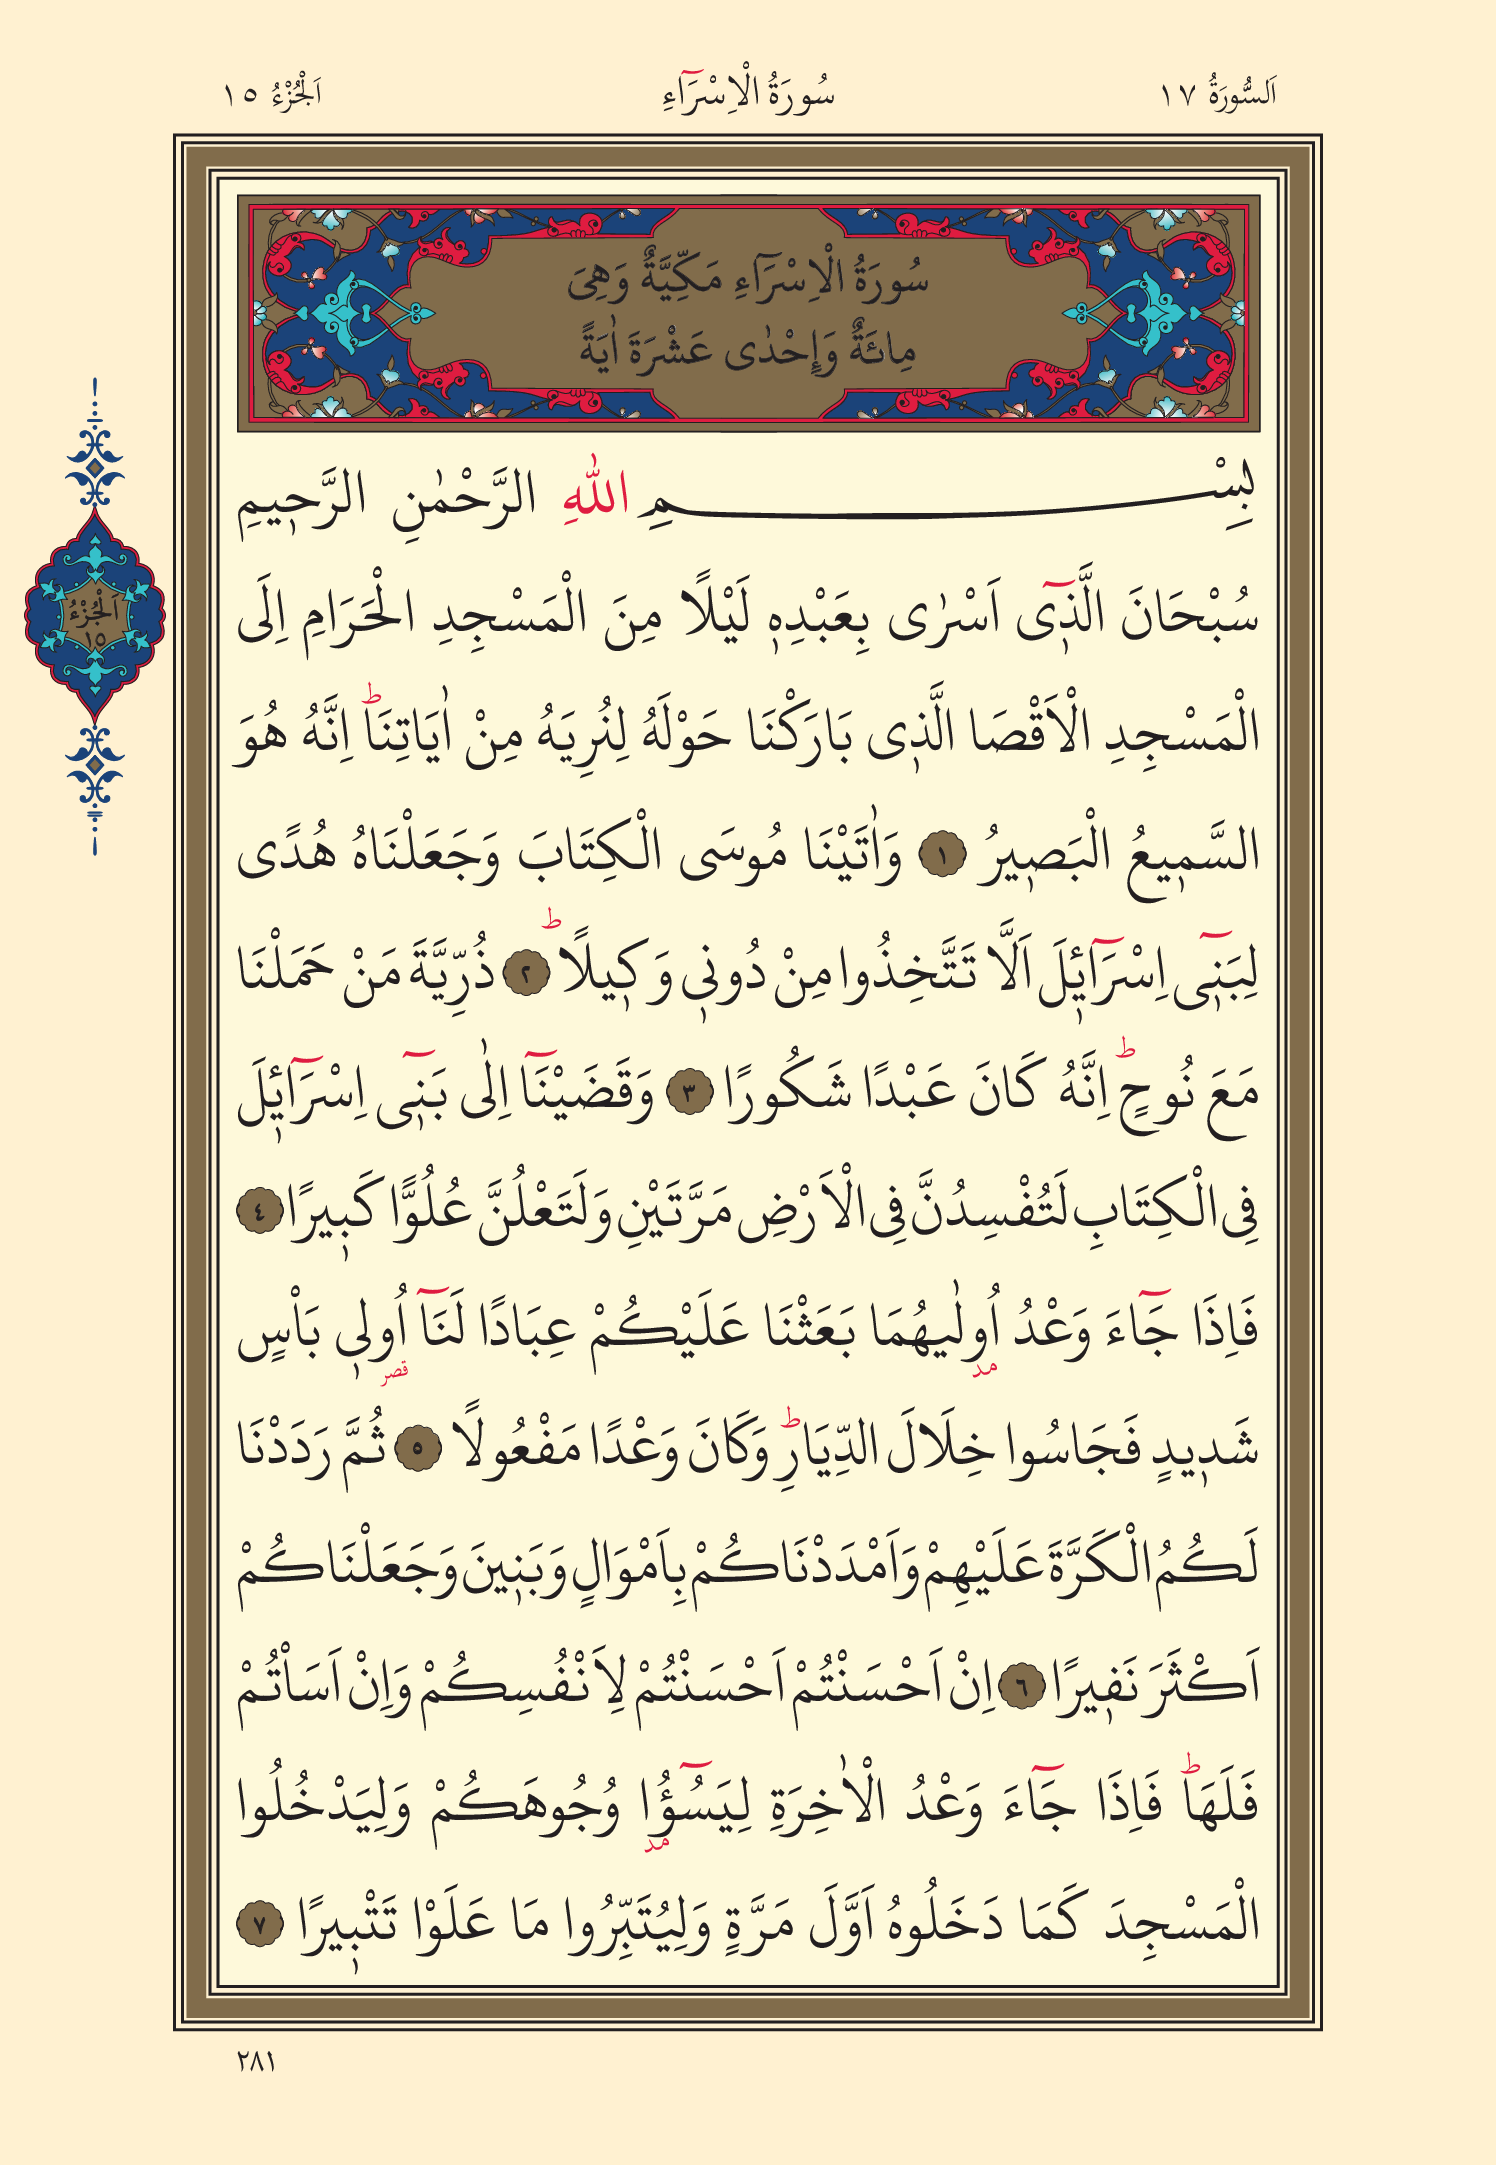 اَلسُّورَةُ ١٧
سُورَةُ الْاِسْرَٓاءِ
اَلْجُزْءُ ١٥
سُورَةُ الْاِسْرَٓاءِ مَكِّيَّةٌ وَهِىَ
مِائَةٌ وَإِحْدٰى عَشْرَةَ اٰيَةً
بِسْـــمِ اللّٰهِ الرَّحْمٰنِ الرَّحٖيمِ
سُبْحَانَ الَّذٖٓى اَسْرٰى بِعَبْدِهٖ لَيْلًا مِنَ الْمَسْجِدِ الْحَرَامِ اِلَى
اَلْجُزْءُ
١٥
الْمَسْجِدِ الْاَقْصَا الَّذٖى بَارَكْنَا حَوْلَهُ لِنُرِيَهُ مِنْ اٰيَاتِنَاؕ اِنَّهُ هُوَ
السَّمٖيعُ الْبَصٖيرُ ١ وَاٰتَيْنَا مُوسَى الْكِتَابَ وَجَعَلْنَاهُ هُدًى
لِبَنٖٓى اِسْرَٓائٖلَ اَلَّا تَتَّخِذُوا مِنْ دُونٖى وَكٖيلًاؕ ٢ ذُرِّيَّةَ مَنْ حَمَلْنَا
مَعَ نُوحٍؕ اِنَّهُ كَانَ عَبْدًا شَكُورًا ٣ وَقَضَيْنَٓا اِلٰى بَنٖٓى اِسْرَٓائٖلَ
فِى الْكِتَابِ لَتُفْسِدُنَّ فِى الْاَرْضِ مَرَّتَيْنِ وَلَتَعْلُنَّ عُلُوًّا كَبٖيرًا ٤
فَاِذَا جَٓاءَ وَعْدُ اُولٰيهُمَا بَعَثْنَا عَلَيْكُمْ عِبَادًا لَنَٓا اُولٖى بَاْسٍ
مد قصر
شَدٖيدٍ فَجَاسُوا خِلَالَ الدِّيَارِؕ وَكَانَ وَعْدًا مَفْعُولًا ٥ ثُمَّ رَدَدْنَا
لَكُمُ الْكَرَّةَ عَلَيْهِمْ وَاَمْدَدْنَاكُمْ بِاَمْوَالٍ وَبَنٖينَ وَجَعَلْنَاكُمْ
اَكْثَرَ نَفٖيرًا ٦ اِنْ اَحْسَنْتُمْ اَحْسَنْتُمْ لِاَنْفُسِكُمْ وَاِنْ اَسَاْتُمْ
فَلَهَاؕ فَاِذَا جَٓاءَ وَعْدُ الْاٰخِرَةِ لِيَسُٓؤُا وُجُوهَكُمْ وَلِيَدْخُلُوا
مد
الْمَسْجِدَ كَمَا دَخَلُوهُ اَوَّلَ مَرَّةٍ وَلِيُتَبِّرُوا مَا عَلَوْا تَتْبٖيرًا ٧
٢٨١